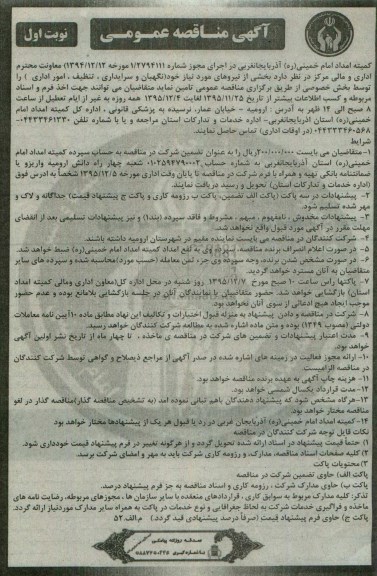 آگهی مناقصه عمومی
نوبت اول
کمیته امداد امام خمینی(ره) آذربایجانغربی در اجرای مجوز شماره 1/2794111 مورخه 1394/12/12 معاونت محترم
اداری و مالی مرکز در نظر دارد بخشی از نیروهای مورد نیاز خود(نگهبان و سرایداری ، تنظیف ، امور اداری ) را
توسط بخش خصوصی از طریق برگزاری مناقصه عمومی تامین نماید متقاضیان می توانند جهت اخذ فرم و اسناد
مربوطه و کسب اطلاعات بیشتر از تاریخ 1395/11/25 لغایت 1395/12/4 همه روزه به غیر از ایام تعطیل از ساعت
8 صبح الی 14 ظهر به آدرس : ارومیه - خیابان عمار، نرسیده به پزشکی قانونی ، اداره کل کمیته امداد امام
خمینی(ره) استان آذربایجانغربی– اداره خدمات و تدارکات استان مراجعه و یا با شماره تلفن 04433461330-
04433460568 (در اوقات اداری) تماس حاصل نمایند.
شرایط
1- متقاضیان می بایست 200/000/000 ریال را به عنوان تضمین شرکت در مناقصه به حساب سپرده کمیته امداد امام
خمینی(ره) استان آذربایجانغربی به شماره حساب شعبه چهار راه دانش ارومیه واریز و یا
ضمانتنامه بانکی تهیه و همراه با فرم شرکت در مناقصه تا پایان وقت اداری مورخه 1395/12/5 شخصاً به آدرس فوق
(اداره خدمات و تدارکات استان) تحویل و رسید دریافت نمایند.
2- پیشنهادات در سه پاکت (پاکت الف تضمین، پاکت ب رزومه کاری و پاکت ج پیشنهاد قیمت) جداگانه و لاک و
مهر شده تسلیم شود.
3- پیشنهادات مخدوش ، نامفهوم ، مبهم ، مشروط و فاقد سپرده (بند1) و نیز پیشنهادات تسلیمی بعد از انقضای
مهلت مقرر در آگهی مورد قبول واقع نخواهد شد.
4- شرکت کنندگان در مناقصه می بایست نماینده مقیم در شهرستان ارومیه داشته باشند.
5- در صورت اعلام انصراف برنده مناقصه، سپرده وی به نفع امداد کمیته امداد امام خمینی(ره) ضبط خواهد شد.
6- در صورت مشخص شدن برنده، وجه سپرده وی جزء ثمن معامله (حسب مورد)محاسبه شده و سپرده های سایر
متقاضیان به آنان مسترد خواهد گردید.
7- پاکتها راس ساعت 10 صبح مورخ 1395/12/7 روز شنبه در محل اداره کل(معاون اداری ومالی کمیته امداد
استان) بازگشایی خواهد شد. حضور متقاضیان یا نمایندگان آنان در جلسه بازگشایی بلامانع بوده و عدم حضور
موجب ایجاد هیچ ادعائی از سوی آنان نخواهد بود.
8- شرکت در مناقصه و دادن پیشنهاد به منزله قبول اختیارات و تکالیف این نهاد مطابق ماده 10 آیین نامه معاملات
دولتی (مصوب 1349) بوده و متن ماده اشاره شده به مطالعه شرکت کنندگان خواهد رسید.
9- مدت اعتبار پیشنهادات و تضمین های شرکت در مناقصه ی ماخذه ، تا چهار ماه از تاریخ نشر اولین آگهی
خواهد بود.
10- ارائه مجوز فعالیت در زمینه های اشاره شده در صدر آگهی از مراجع ذیصلاح و گواهی توسط شرکت کنندگان
در مناقصه الزامیست.
11- هزینه چاپ آگهی به عهده برنده مناقصه خواهد بود.
12- مدت قرارداد یکسال شمسی خواهد بود.
13- هرگاه مشخص شود که پیشنهاد دهندگان باهم تبانی نموده اند (به تشخیص مناقصه گذار)مناقصه گذار در لغو
مناقصه مختار خواهد بود.
14- کمیته امداد امام خمینی(ره) آذربایجان غربی در رد یا قبول هر یک از پیشنهادها مختار خواهد بود
نکات قابل توجه شرکت کنندگان در مناقصه
1) حتماً قیمت پیشنهاد در اسناد ارائه شده تحویل گردد و از هرگونه تغییر در فرم پیشنهاد قیمت خودداری شود.
2) کلیه صفحات اسناد مناقصه، مدارک، و رزومه کاری شرکت باید به مهر و امضای شرکت برسد.
3) محتویات پاکت
پاکت الف) حاوی تضمین شرکت در مناقصه
پاکت ب) حاوی مدارک شرکت ، رزومه کاری و اسناد مناقصه به جز فرم پیشنهاد درصد.
تذکر: کلیه مدارک مربوط به سوابق کاری ، قراردادهای منعقده با سایر سازمان ها ، مجوزهای مربوطه، رضایت نامه های
ماخذه و فراگیری خدمات شرکت به لحاظ جغرافیایی و نوع خدمات در پاکت به همراه سایر مدارک موردنیاز ارائه گردد.
پاکت ج) حاوی فرم پیشنهاد قیمت (صرفاً درصد پیشنهادی قید گردد.) م الف 52